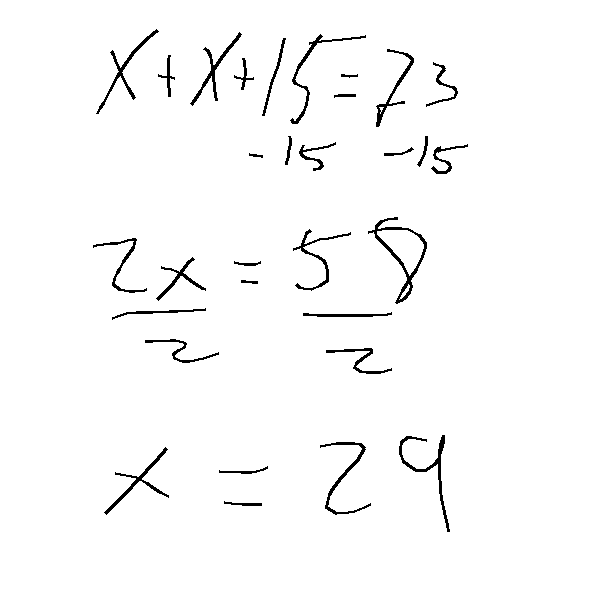 x+x+15=73
-15 -15
2x = 58
2 2
x = 29